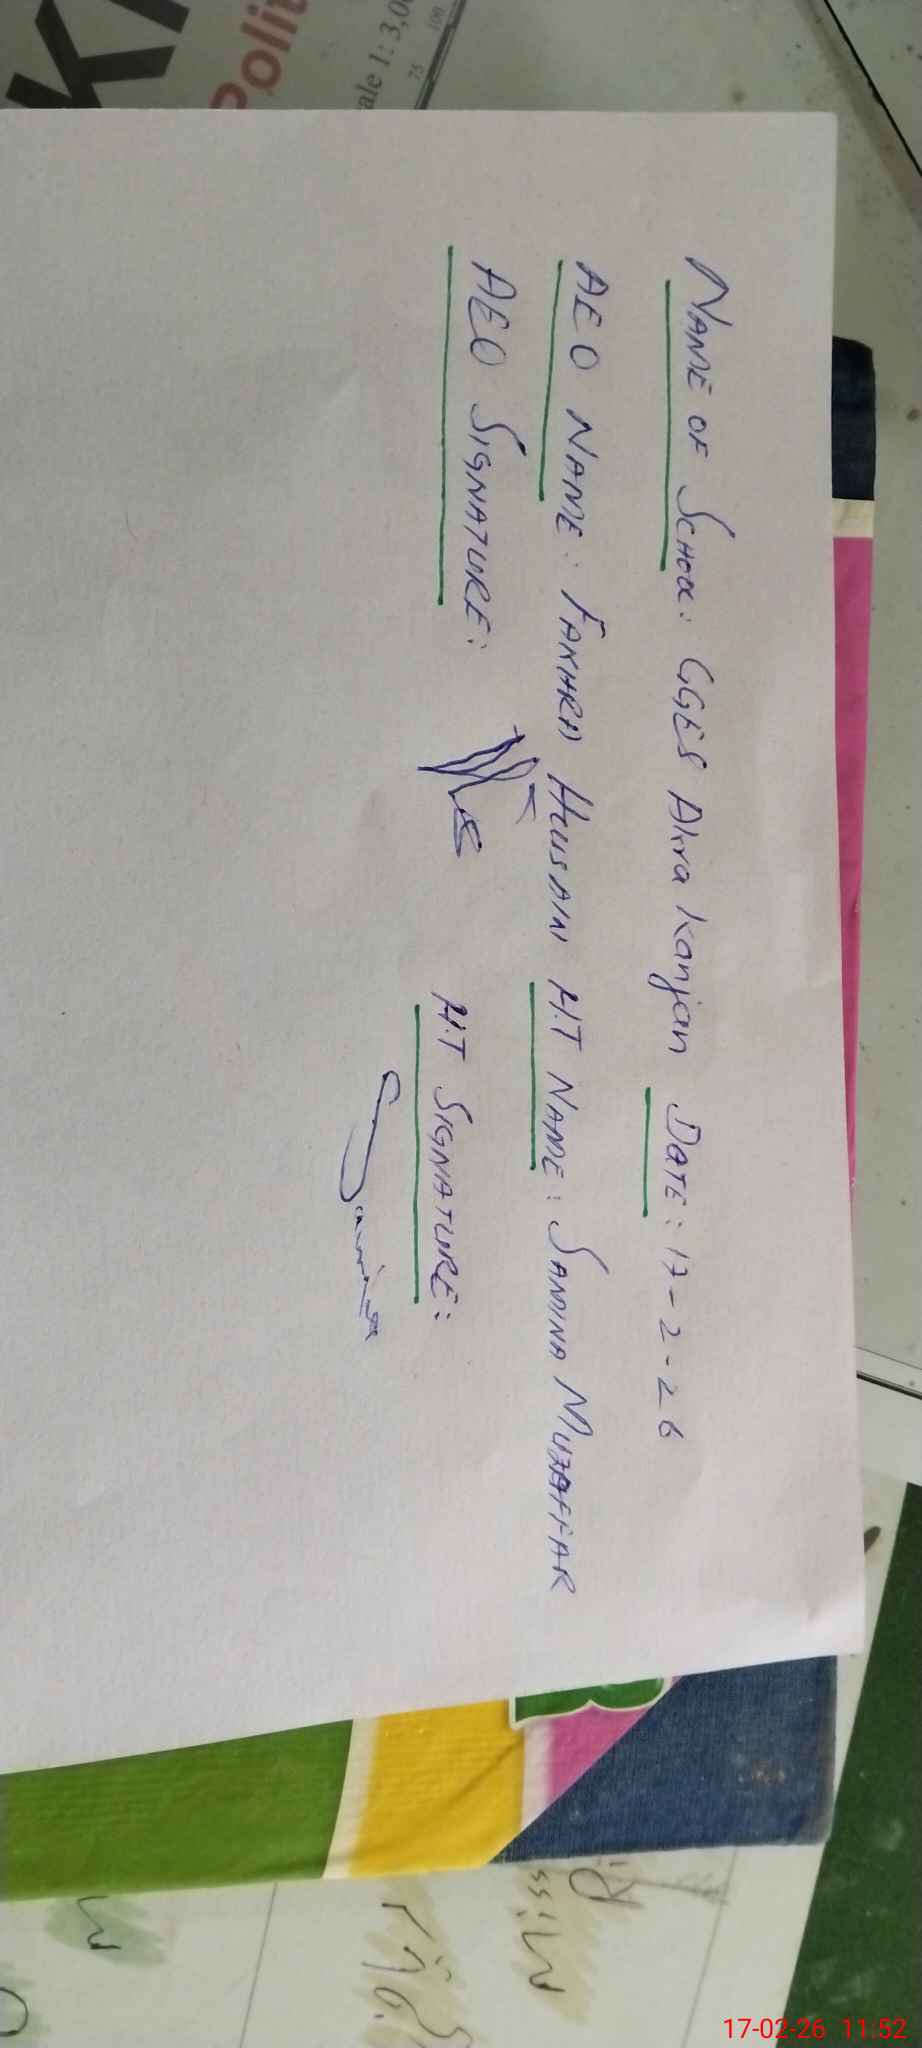 KI
Polit
ale 1: 3,00
75 100
NAME OF SCHOOL: GGES Akra Kanjan DATE: 17-2-26
AEO NAME: FAHAD HUSSAIN H.T NAME: SAMINA MUZAFFAR
AEO SIGNATURE: H.T SIGNATURE:
Samina
17-02-26 11:52